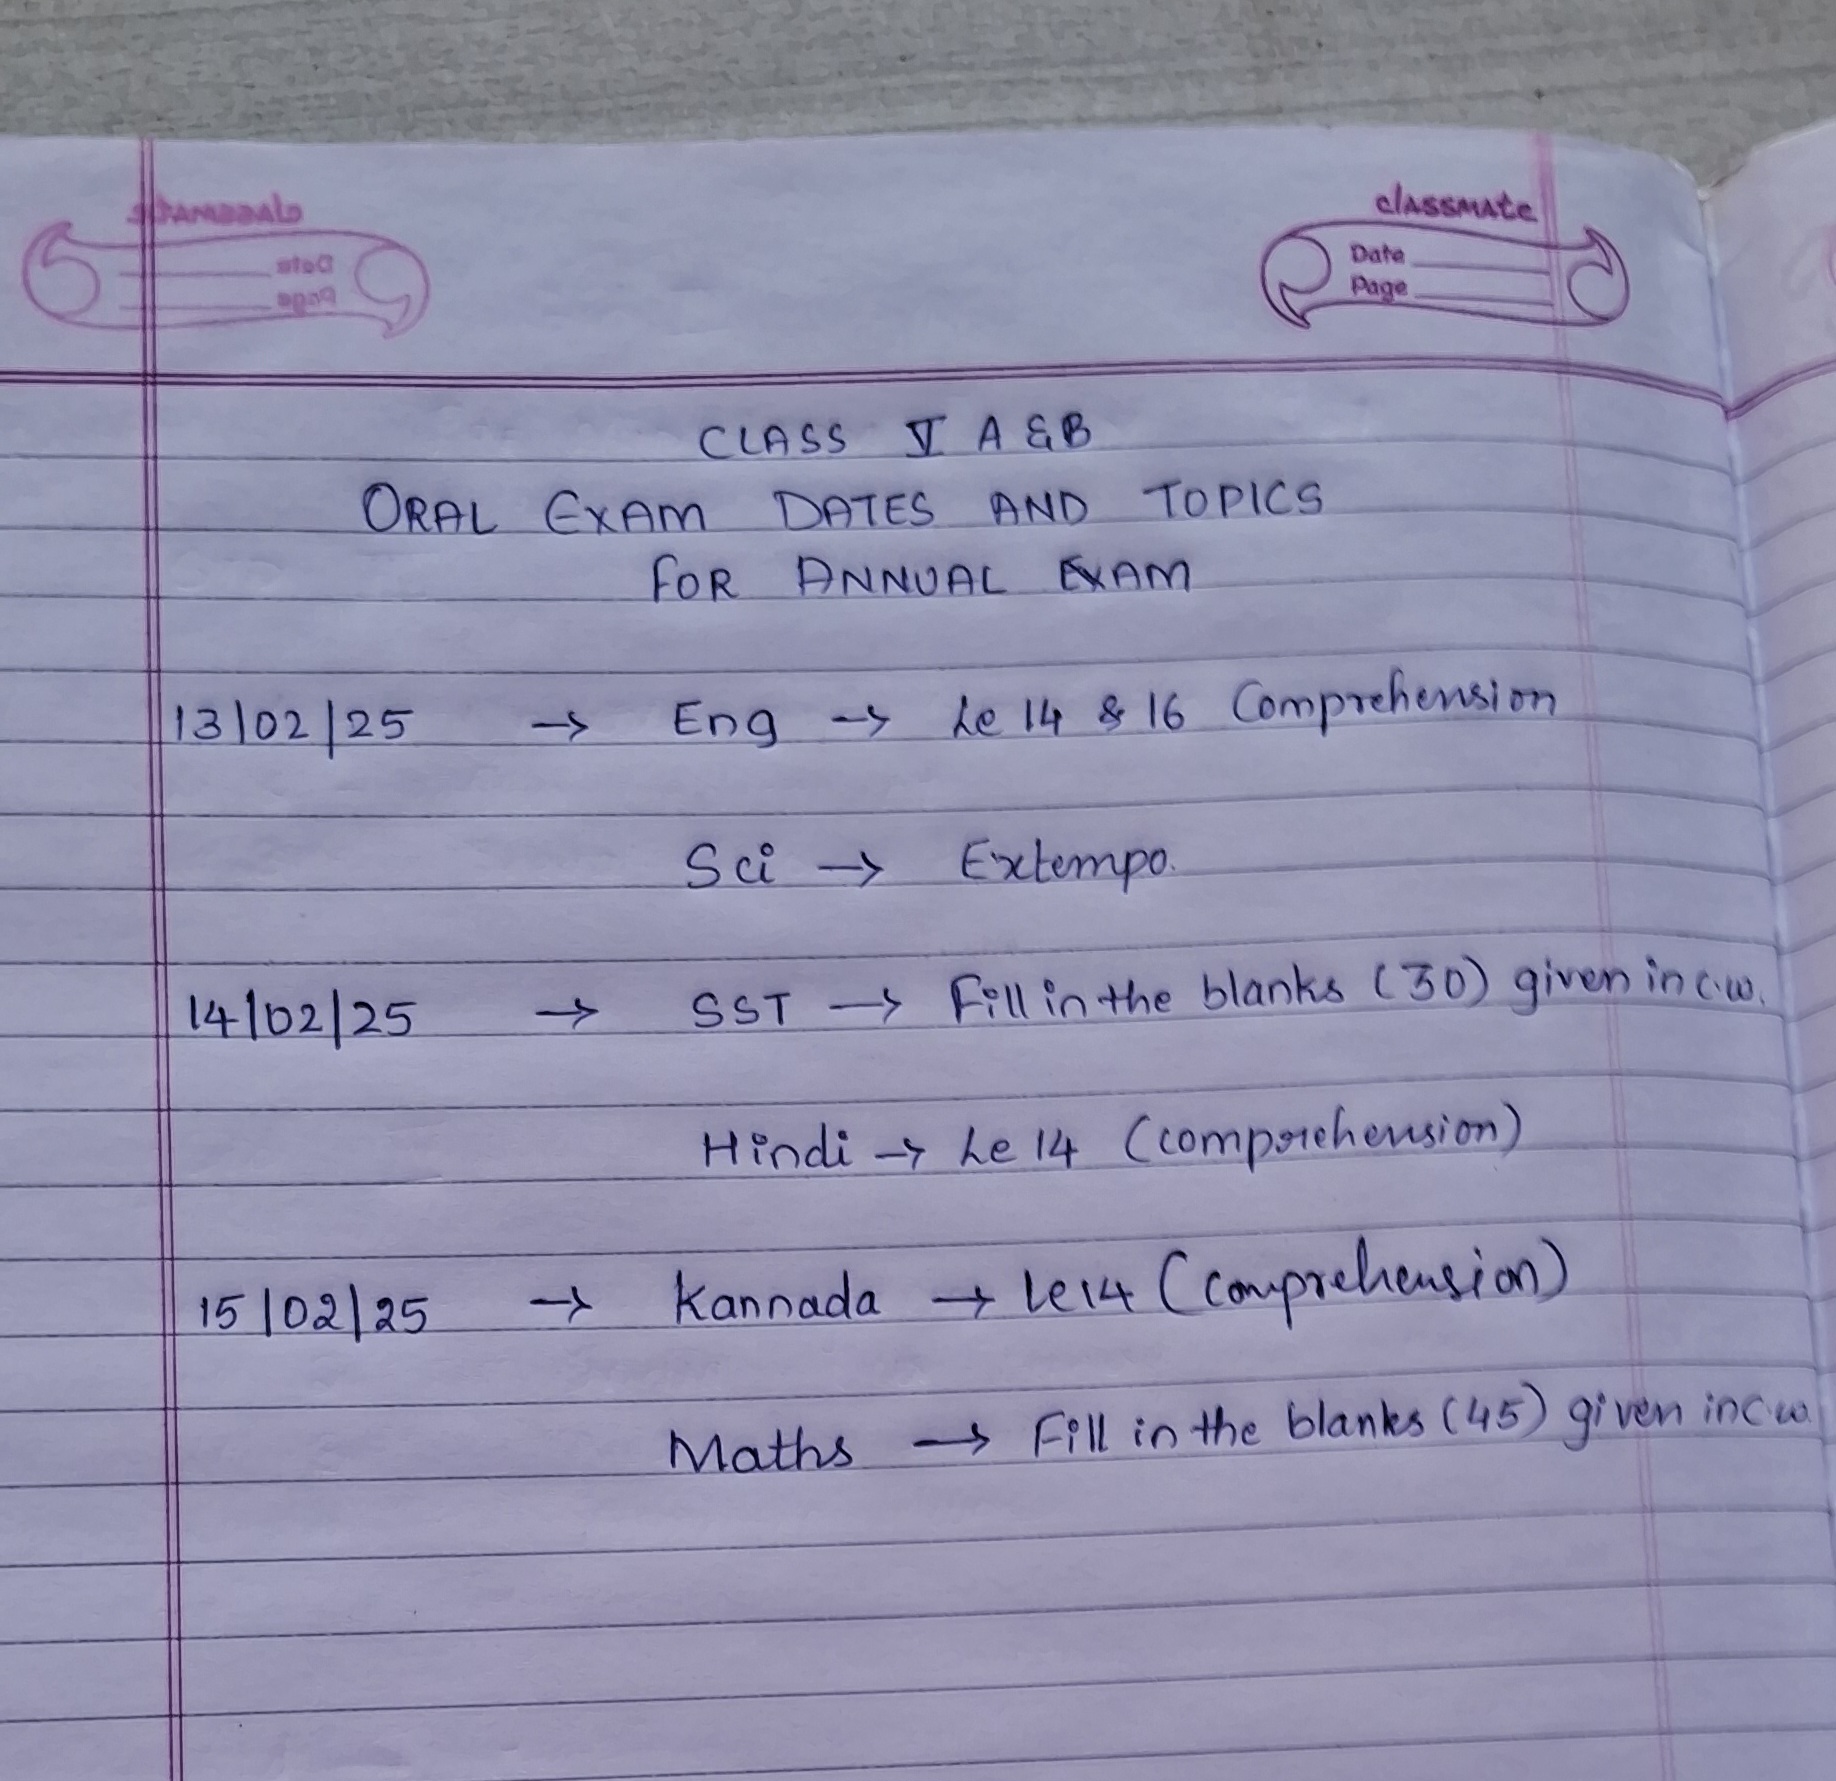 classmate
Date
Page
CLASS V A & B
ORAL EXAM DATES AND TOPICS
FOR ANNUAL EXAM
13/02/25 → Eng → Le 14 & 16 Comprehension
Sci → Extempo.
14/02/25 → SST → Fill in the blanks (30) given in c.w.
Hindi → Le 14 (comprehension)
15/02/25 → Kannada → Le 14 (comprehension)
Maths → Fill in the blanks (45) given in c.w.